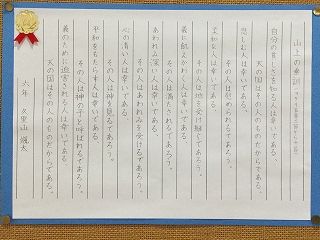 山上の垂訓
自分の貧しさを知る人は幸いである、
天の国はその人のものだからである。
悲しむ人は幸いである、
その人は慰められるであろう。
柔和な人は幸いである、
その人は地を受け継ぐであろう。
義に飢えかわく人は幸いである、
その人は満たされるであろう。
あわれみ深い人は幸いである、
その人はあわれみを受けるであろう。
心の清い人は幸いである、
その人は神を見るであろう。
平和をもたらす人は幸いである、
その人は神の子と呼ばれるであろう。
義のために迫害される人は幸いである、
天の国はその人のものだからである。
六年 久里山 颯太